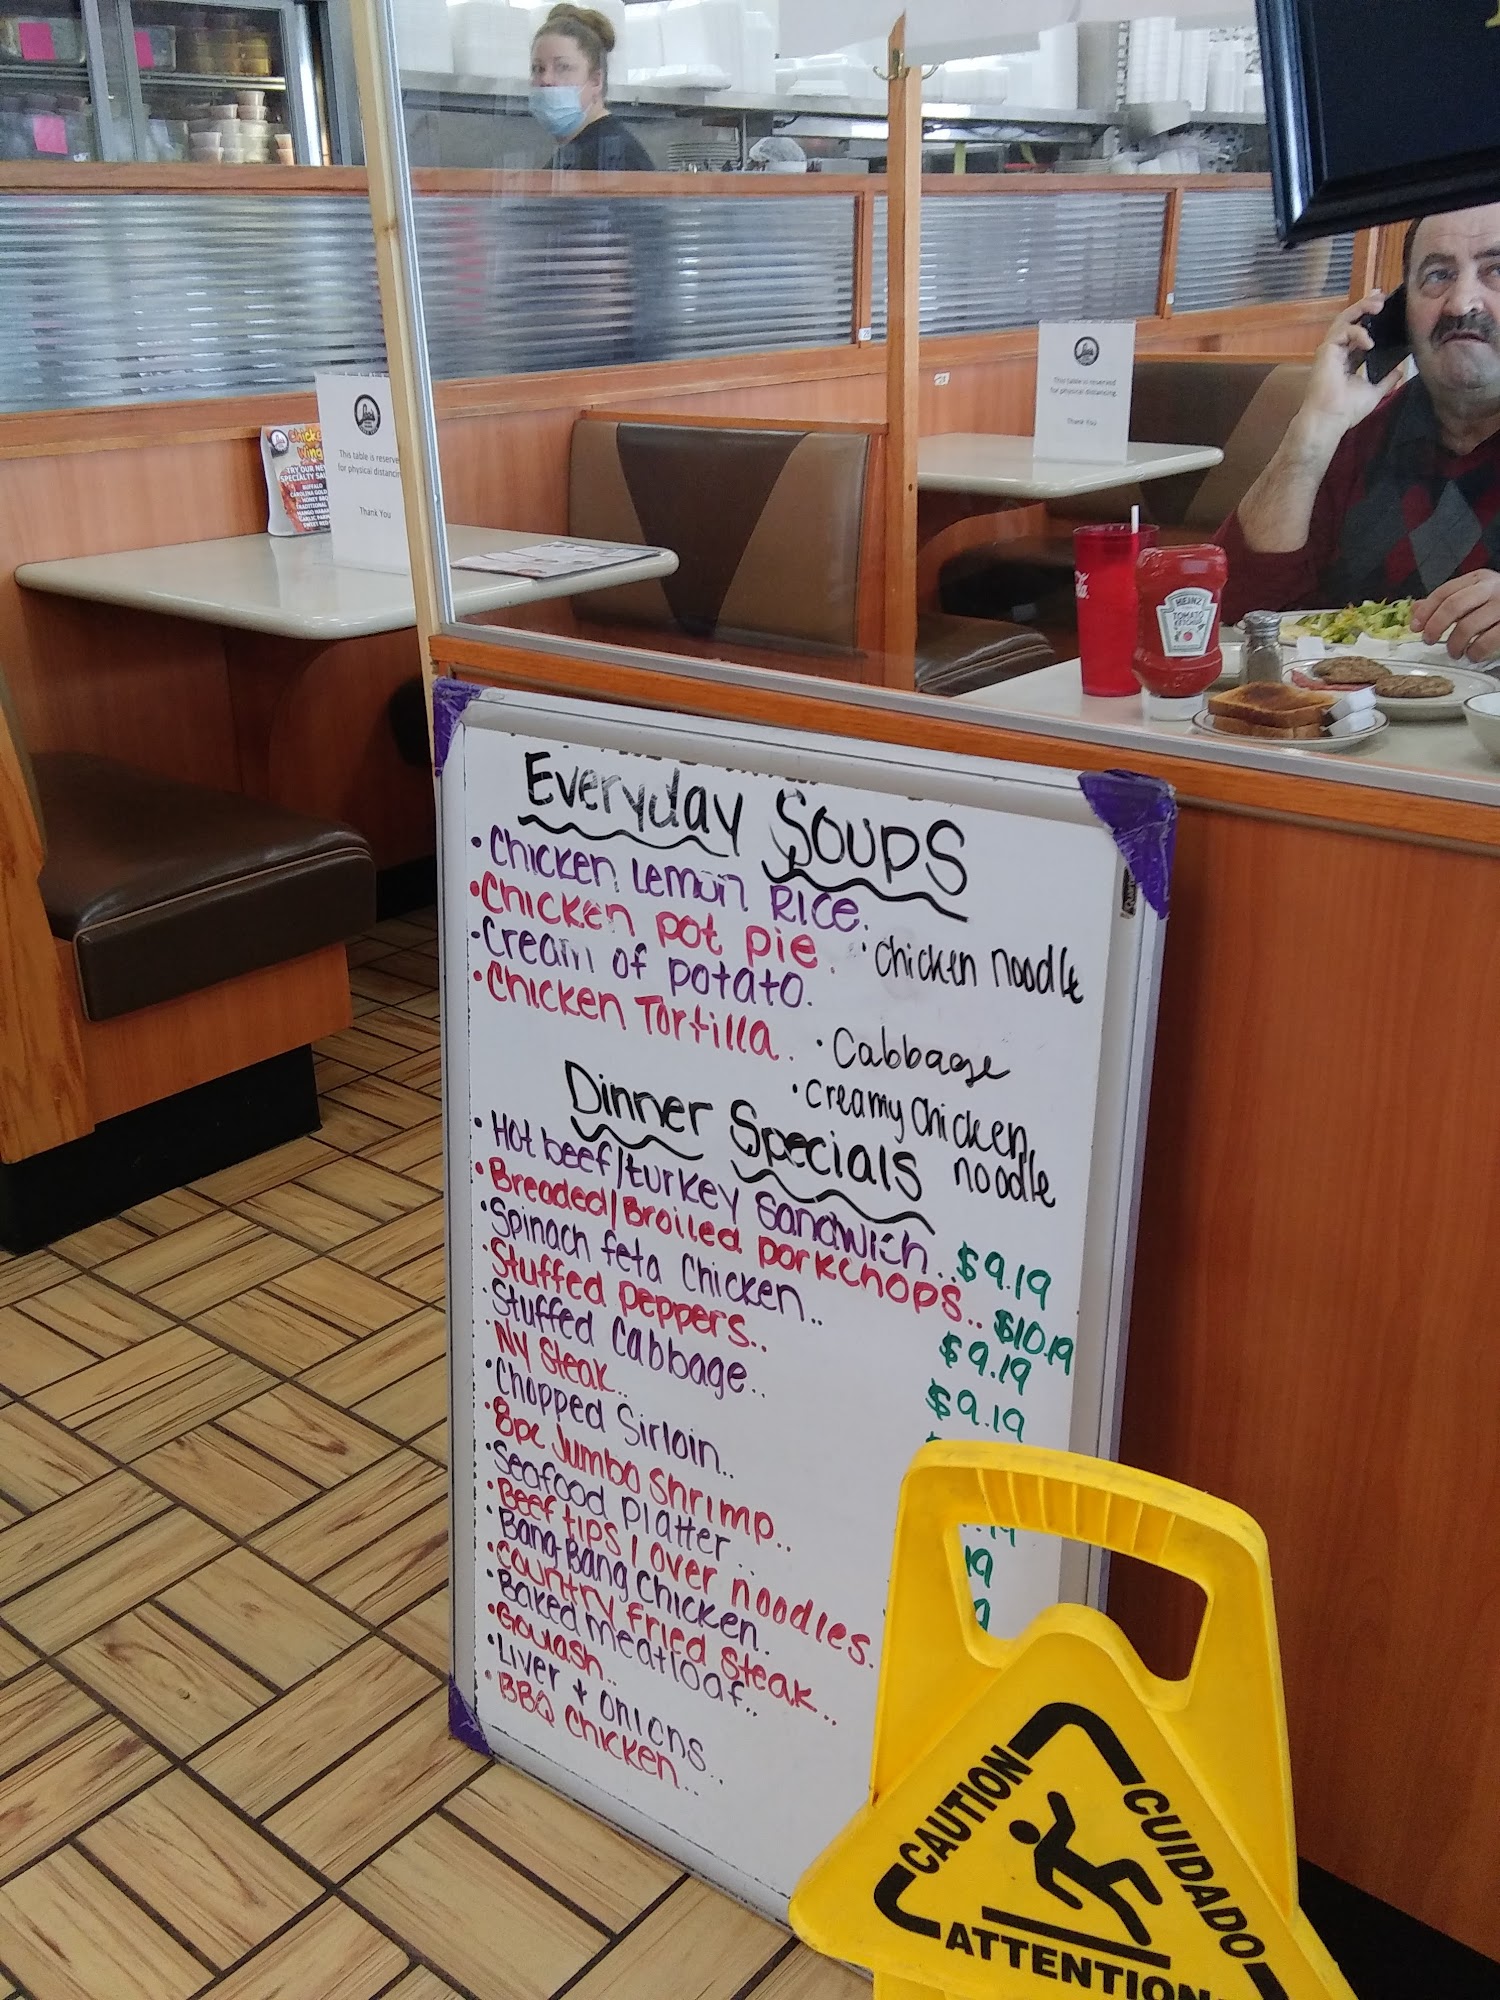 This table is reserved
for physical distancing.
Thank You
This table is reserve
for physical distancin
Thank You
TRY OUR NE
SPECIALTY SA
BUFFALO
CAROLINA GOLD
HONEY BBQ
TRADITIONAL
HEINZ
TOMATO
KETCHUP
Everyday Soups
• Chicken Lemon Rice.
• Chicken pot pie.
• Chicken noodle
• Cream of potato.
• Chicken Tortilla..
• Cabbage
• Creamy Chicken
noodle
Dinner Specials
• Hot beef/turkey Sandwich.. $9.19
• Breaded/Broiled porkchops.. $10.19
• Spinach feta Chicken.. $9.19
• Stuffed peppers.. $9.19
• Stuffed Cabbage..
• NY Steak..
• Chopped Sirloin..
• 8pc Jumbo Shrimp..
• Seafood platter...
• Beef tips / over noodles.
• Bang-Bang Chicken.
• Country Fried Steak..
• Baked meatloaf..
• Goulash..
• Liver + onions..
• BBQ Chicken...
CAUTION
CUIDADO
ATTENTION